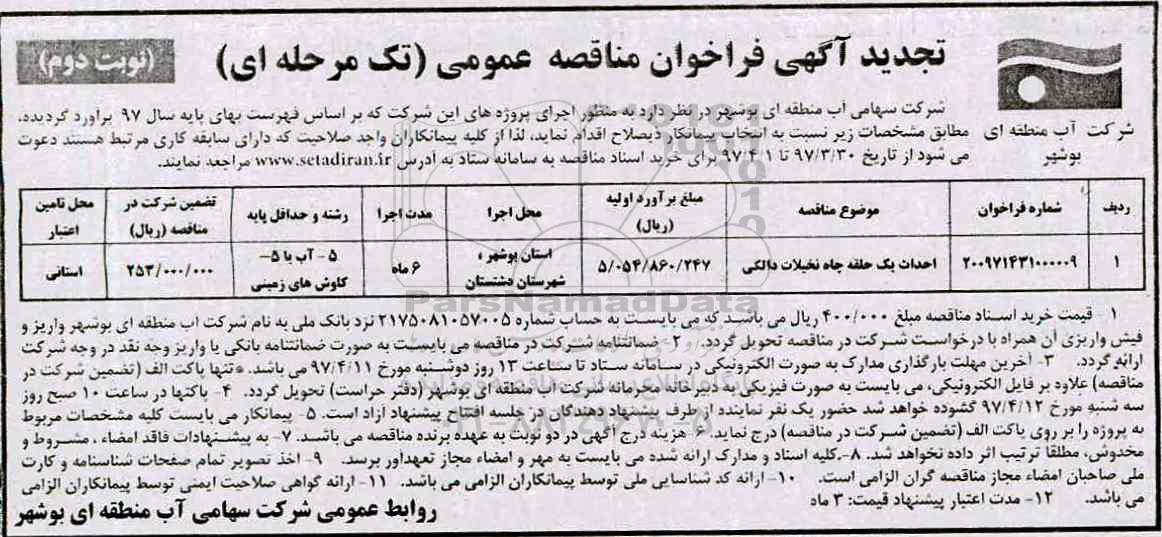 تجدید آگهی فراخوان مناقصه عمومی (تک مرحله ای)
(نوبت دوم)
شرکت آب منطقه ای
بوشهر
شرکت سهامی آب منطقه ای بوشهر در نظر دارد به منظور اجرای پروژه های این شرکت که بر اساس فهرست بهای پایه سال ۹۷ برآورد گردیده،
مطابق مشخصات زیر نسبت به انتخاب پیمانکار ذیصلاح اقدام نماید، لذا از کلیه پیمانکاران واجد صلاحیت که دارای سابقه کاری مرتبط هستند دعوت
می شود از تاریخ ۹۷/۳/۳۰ تا ۹۷/۴/۱ برای خرید اسناد مناقصه به سامانه ستاد به آدرس www.setadiran.ir مراجعه نمایند.
ردیف شماره فراخوان موضوع مناقصه مبلغ برآورد اولیه (ریال) محل اجرا مدت اجرا رشته و حداقل پایه تضمین شرکت در مناقصه (ریال) محل تامین اعتبار
۱ ۲۰۰۹۷۱۴۳۱۰۰۰۰۰۹ احداث یک حلقه چاه نخیلات دالکی ۵/۰۵۴/۸۶۰/۲۴۷ استان بوشهر، شهرستان دشتستان ۶ ماه ۵- آب یا ۵- کاوش های زمینی ۲۵۳/۰۰۰/۰۰۰ استانی
ParsNamadData
۱- قیمت خرید اسناد مناقصه مبلغ ۴۰۰/۰۰۰ ریال می باشد که می بایست به حساب شماره ۲۱۷۵۰۸۱۰۵۷۰۰۵ نزد بانک ملی به نام شرکت آب منطقه ای بوشهر واریز و
فیش واریزی آن همراه با درخواست شرکت در مناقصه تحویل گردد. ۲- ضمانتنامه شرکت در مناقصه می بایست به صورت ضمانتنامه بانکی یا واریز وجه نقد در وجه شرکت
ارائه گردد. ۳- آخرین مهلت بارگذاری مدارک به صورت الکترونیکی در سامانه ستاد تا ساعت ۱۳ روز دوشنبه مورخ ۹۷/۴/۱۱ می باشد. *تنها پاکت الف (تضمین شرکت در
مناقصه) علاوه بر فایل الکترونیکی، می بایست به صورت فیزیکی به دبیرخانه محرمانه شرکت آب منطقه ای بوشهر (دفتر حراست) تحویل گردد. ۴- پاکتها در ساعت ۱۰ صبح روز
سه شنبه مورخ ۹۷/۴/۱۲ گشوده خواهد شد حضور یک نفر نماینده از طرف پیشنهاد دهندگان در جلسه افتتاح پیشنهاد آزاد است. ۵- پیمانکار می بایست کلیه مشخصات مربوط
به پروژه را بر روی پاکت الف (تضمین شرکت در مناقصه) درج نماید. ۶- هزینه درج آگهی در دو نوبت به عهده برنده مناقصه می باشد. ۷- به پیشنهادات فاقد امضاء ، مشروط و
مخدوش، مطلقا ترتیب اثر داده نخواهد شد. ۸- کلیه اسناد و مدارک ارائه شده می بایست به مهر و امضاء مجاز تعهدآور برسد. ۹- اخذ تصویر تمام صفحات شناسنامه و کارت
ملی صاحبان امضاء مجاز مناقصه گران الزامی است. ۱۰- ارائه کد شناسایی ملی توسط پیمانکاران الزامی می باشد. ۱۱- ارائه گواهی صلاحیت ایمنی توسط پیمانکاران الزامی
می باشد. ۱۲- مدت اعتبار پیشنهاد قیمت: ۳ ماه
روابط عمومی شرکت سهامی آب منطقه ای بوشهر